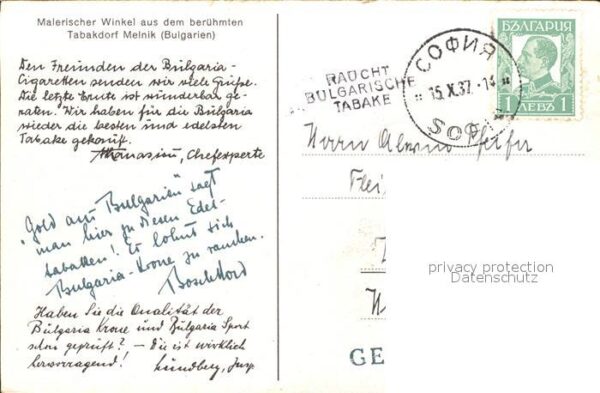 Malerischer Winkel aus dem berühmten
Tabakdorf Melnik (Bulgarien)
Den Freunden der Bulgaria-
Cigaretten senden wir viele Grüße.
Die letzte Ernte ist wunderbar ge-
raten. Wir haben für die Bulgaria
wieder die besten und edelsten
Tabake gekauft.
Athanasiu, Chefexperte
"Gold aus Bulgarien" sagt
man hier zu diesen Edel-
tabaken! Es lohnt sich
Bulgaria-Krone zu rauchen.
Haben Sie die Qualität der
Bulgaria Krone und Bulgaria Sport
schon geprüft? – die ist wirklich
hervorragend! Lundberg, Insp.
RAUCHT
BULGARISCHE
TABAKE
СОФИЯ
15.X.37.-14
SOFIA
БЪЛГАРИЯ
1 ЛЕВЪ 1
Herrn
GE
privacy protection
Datenschutz